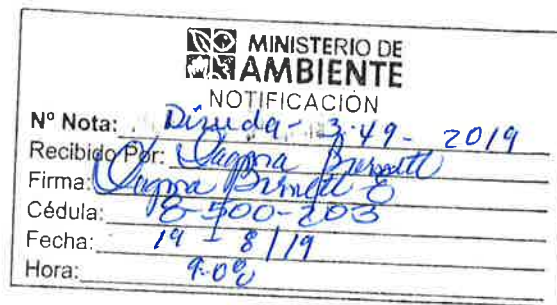 MINISTERIO DE
AMBIENTE
NOTIFICACIÓN
Nº Nota: 349- 2019
Recibido Por: Dagma Burnett
Firma: Dagma Burnett E
Cédula: 8-500-203
Fecha: 19 - 8/19
Hora: